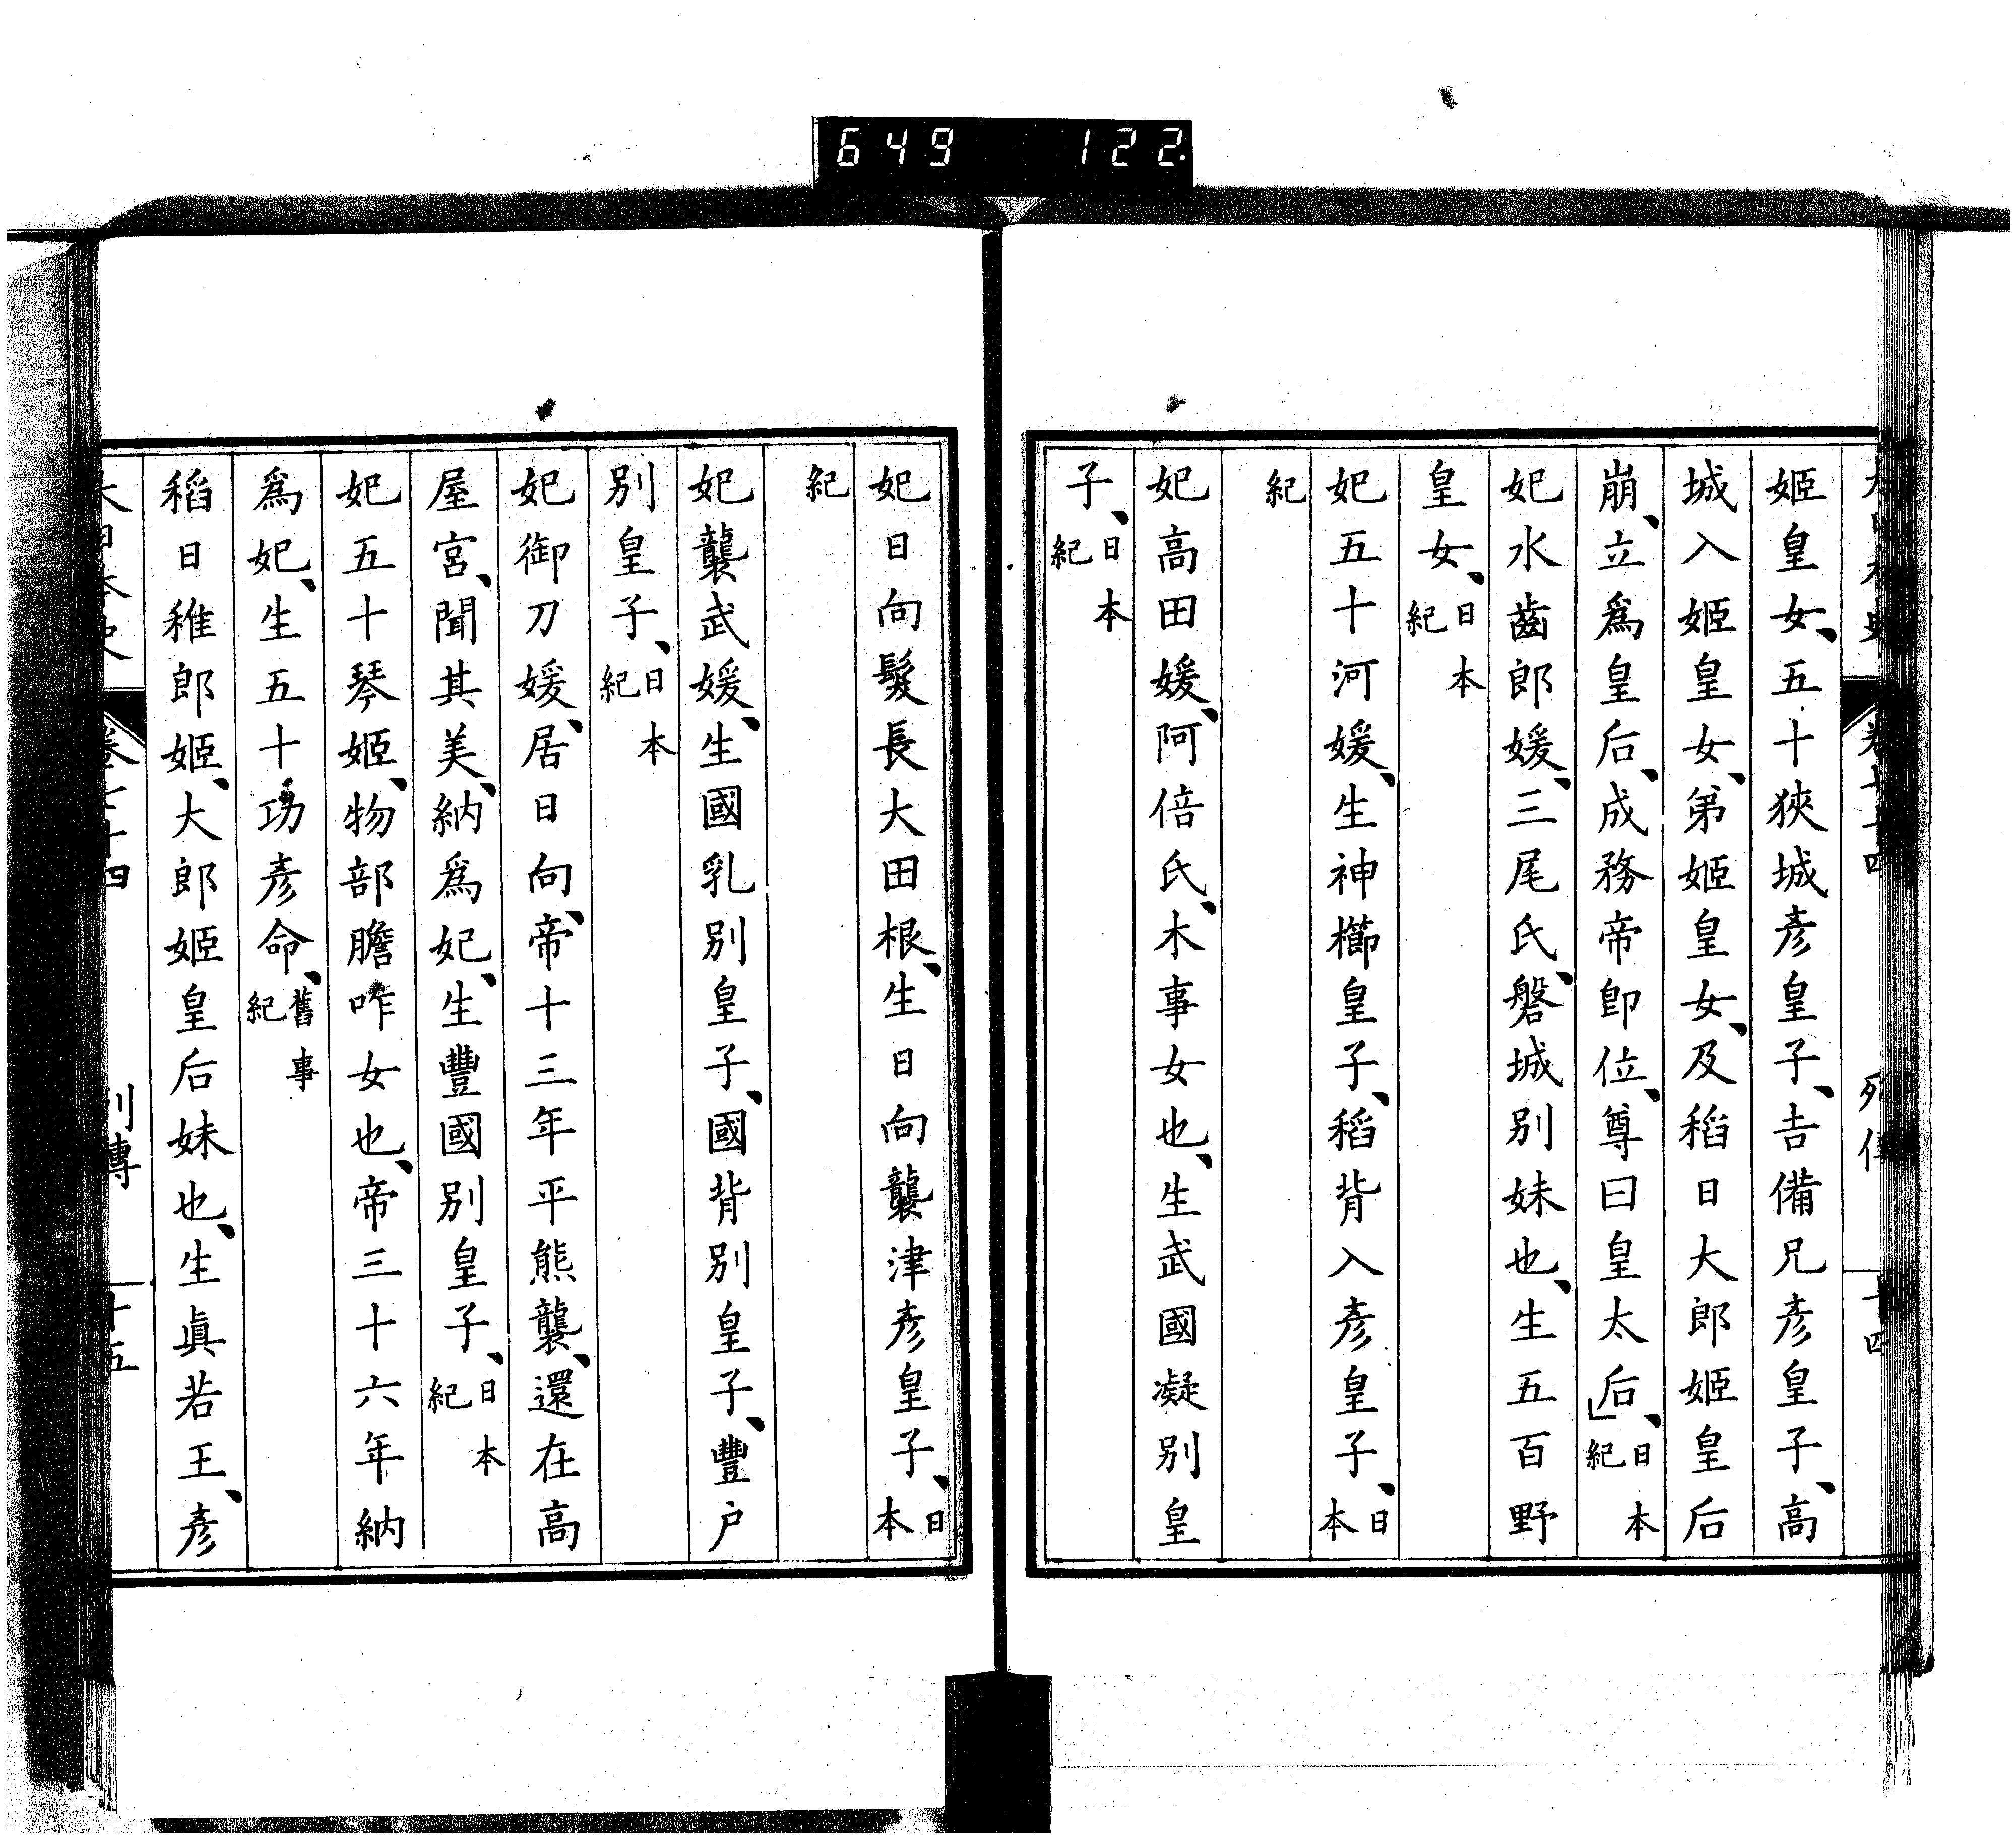 649 122.
大日本史 卷七十四 列傳 十四
姬皇女、五十狹城彥皇子、吉備兄彥皇子、高
城入姬皇女、弟姬皇女、及稻日大郎姬皇后
崩、立爲皇后、成務帝卽位、尊曰皇太后」、日本紀
妃水齒郎媛、三尾氏、磐城別妹也、生五百野
皇女、日本紀
妃五十河媛、生神櫛皇子、稻背入彥皇子、日本
紀
妃高田媛、阿倍氏、木事女也、生武國凝別皇
子、日本紀
妃日向髮長大田根、生日向襲津彥皇子、日本
紀
妃襲武媛、生國乳別皇子、國背別皇子、豐戶
別皇子、日本紀
妃御刀媛、居日向、帝十三年平熊襲、還在高
屋宮、聞其美、納爲妃、生豐國別皇子、日本紀
妃五十琴姬、物部膽咋女也、帝三十六年納
爲妃、生五十功彥命、舊事紀
稻日稚郎姬、大郎姬皇后妹也、生眞若王、彥
大日本史 卷七十四 列傳 十五